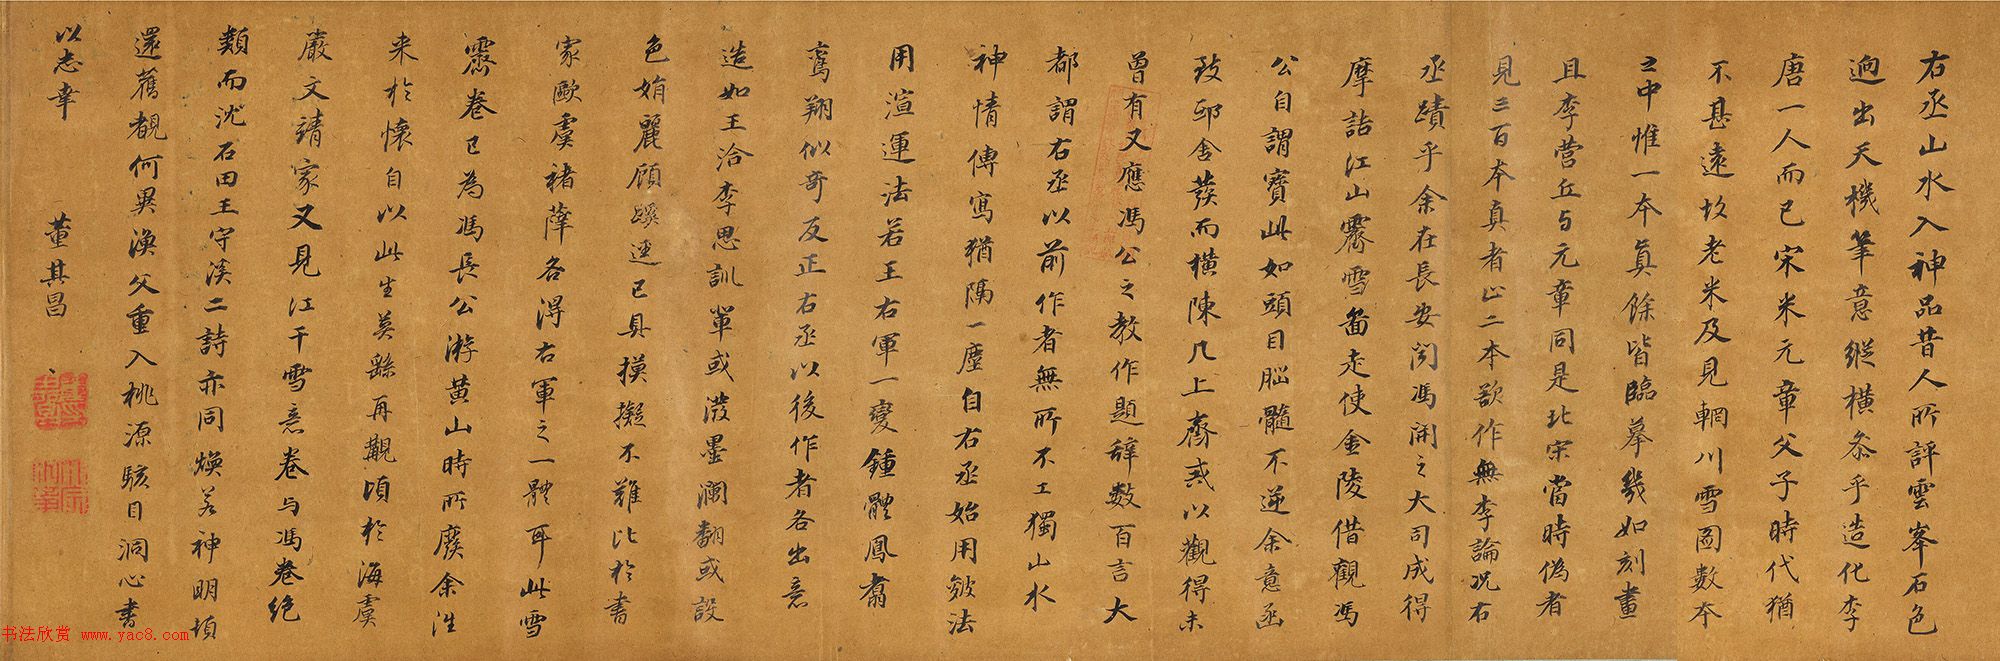 右丞山水入神品昔人所評雲峯石色
迥出天機筆意縱橫參乎造化李
唐一人而已宋米元章父子時代猶
不甚遠故老米及見輞川雪圖數本
之中惟一本真餘皆臨摹幾如刻畫
且李營丘与元章同是北宋當時偽者
見三百本真者止二本欲作無李論况右
丞蹟乎余在長安聞馮開之大司成得
摩詰江山霽雪啚走使金陵借觀馮
公自謂寶此如頭目腦髓不逆余意函
致邸舍發而橫陳几上齋戒以觀得未
曾有又應馮公之教作題辞數百言大
都謂右丞以前作者無所不工獨山水
神情傳寫猶隔一塵自右丞始用皴法
用渲運法若王右軍一變鍾體鳳翥
鸞翔似奇反正右丞以後作者各出意
造如王洽李思訓輩或潑墨瀾翻或設
色娟麗顧蹊逕已具摸擬不難比於書
家歐虞褚薛各得右軍之一體耳此雪
霽卷已為馮長公游黃山時所廢余往
来於懷自以此生莫繇再觀頃於海虞
嚴文靖家又見江干雪意卷与馮卷絕
類而沈石田王守溪二詩亦同煥若神明頓
還舊觀何異漁父重入桃源駭目洞心書
以志幸
董其昌
书法欣赏 www.yac8.com